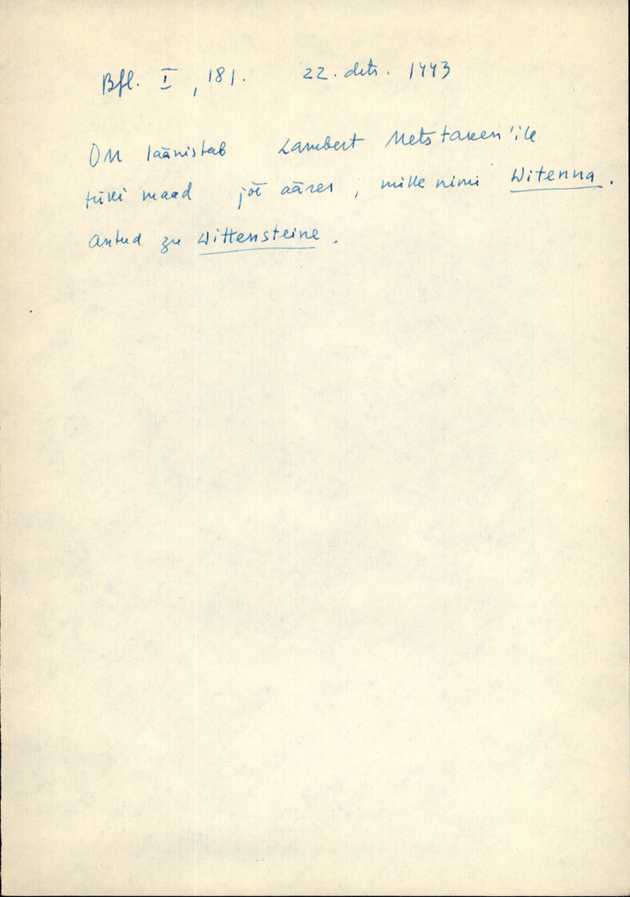 Bfl. I, 181. 22. dets. 1443
OM läänistab Lambert Metstaken'ile
tüki maad jõe ääres, mille nimi Witenna.
Antud zu Wittensteine.